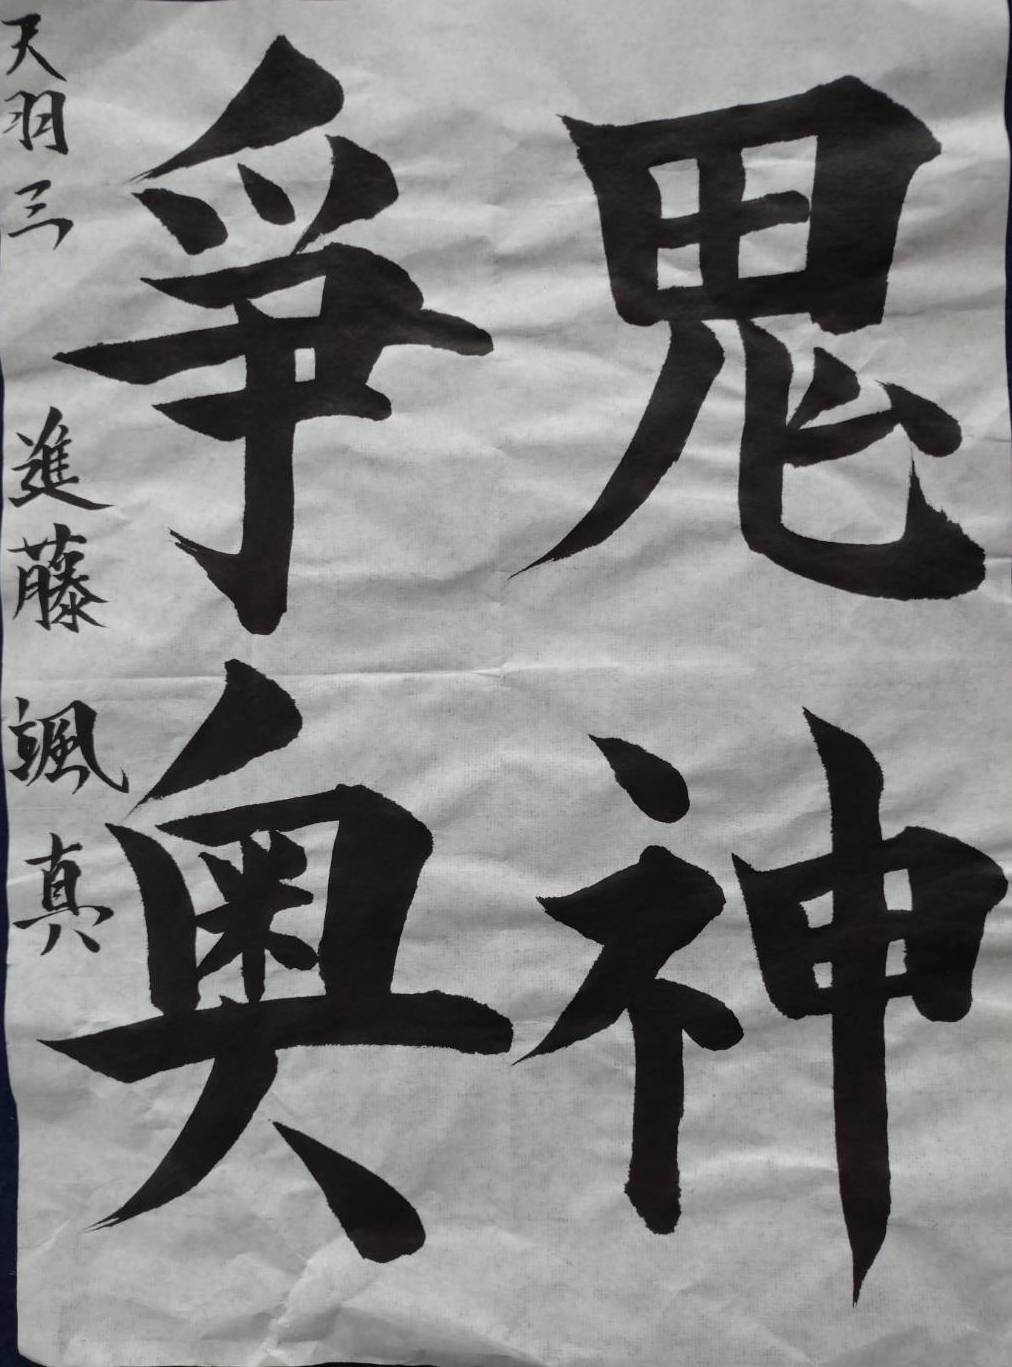 鬼神
爭奥
天羽三 進藤颯真